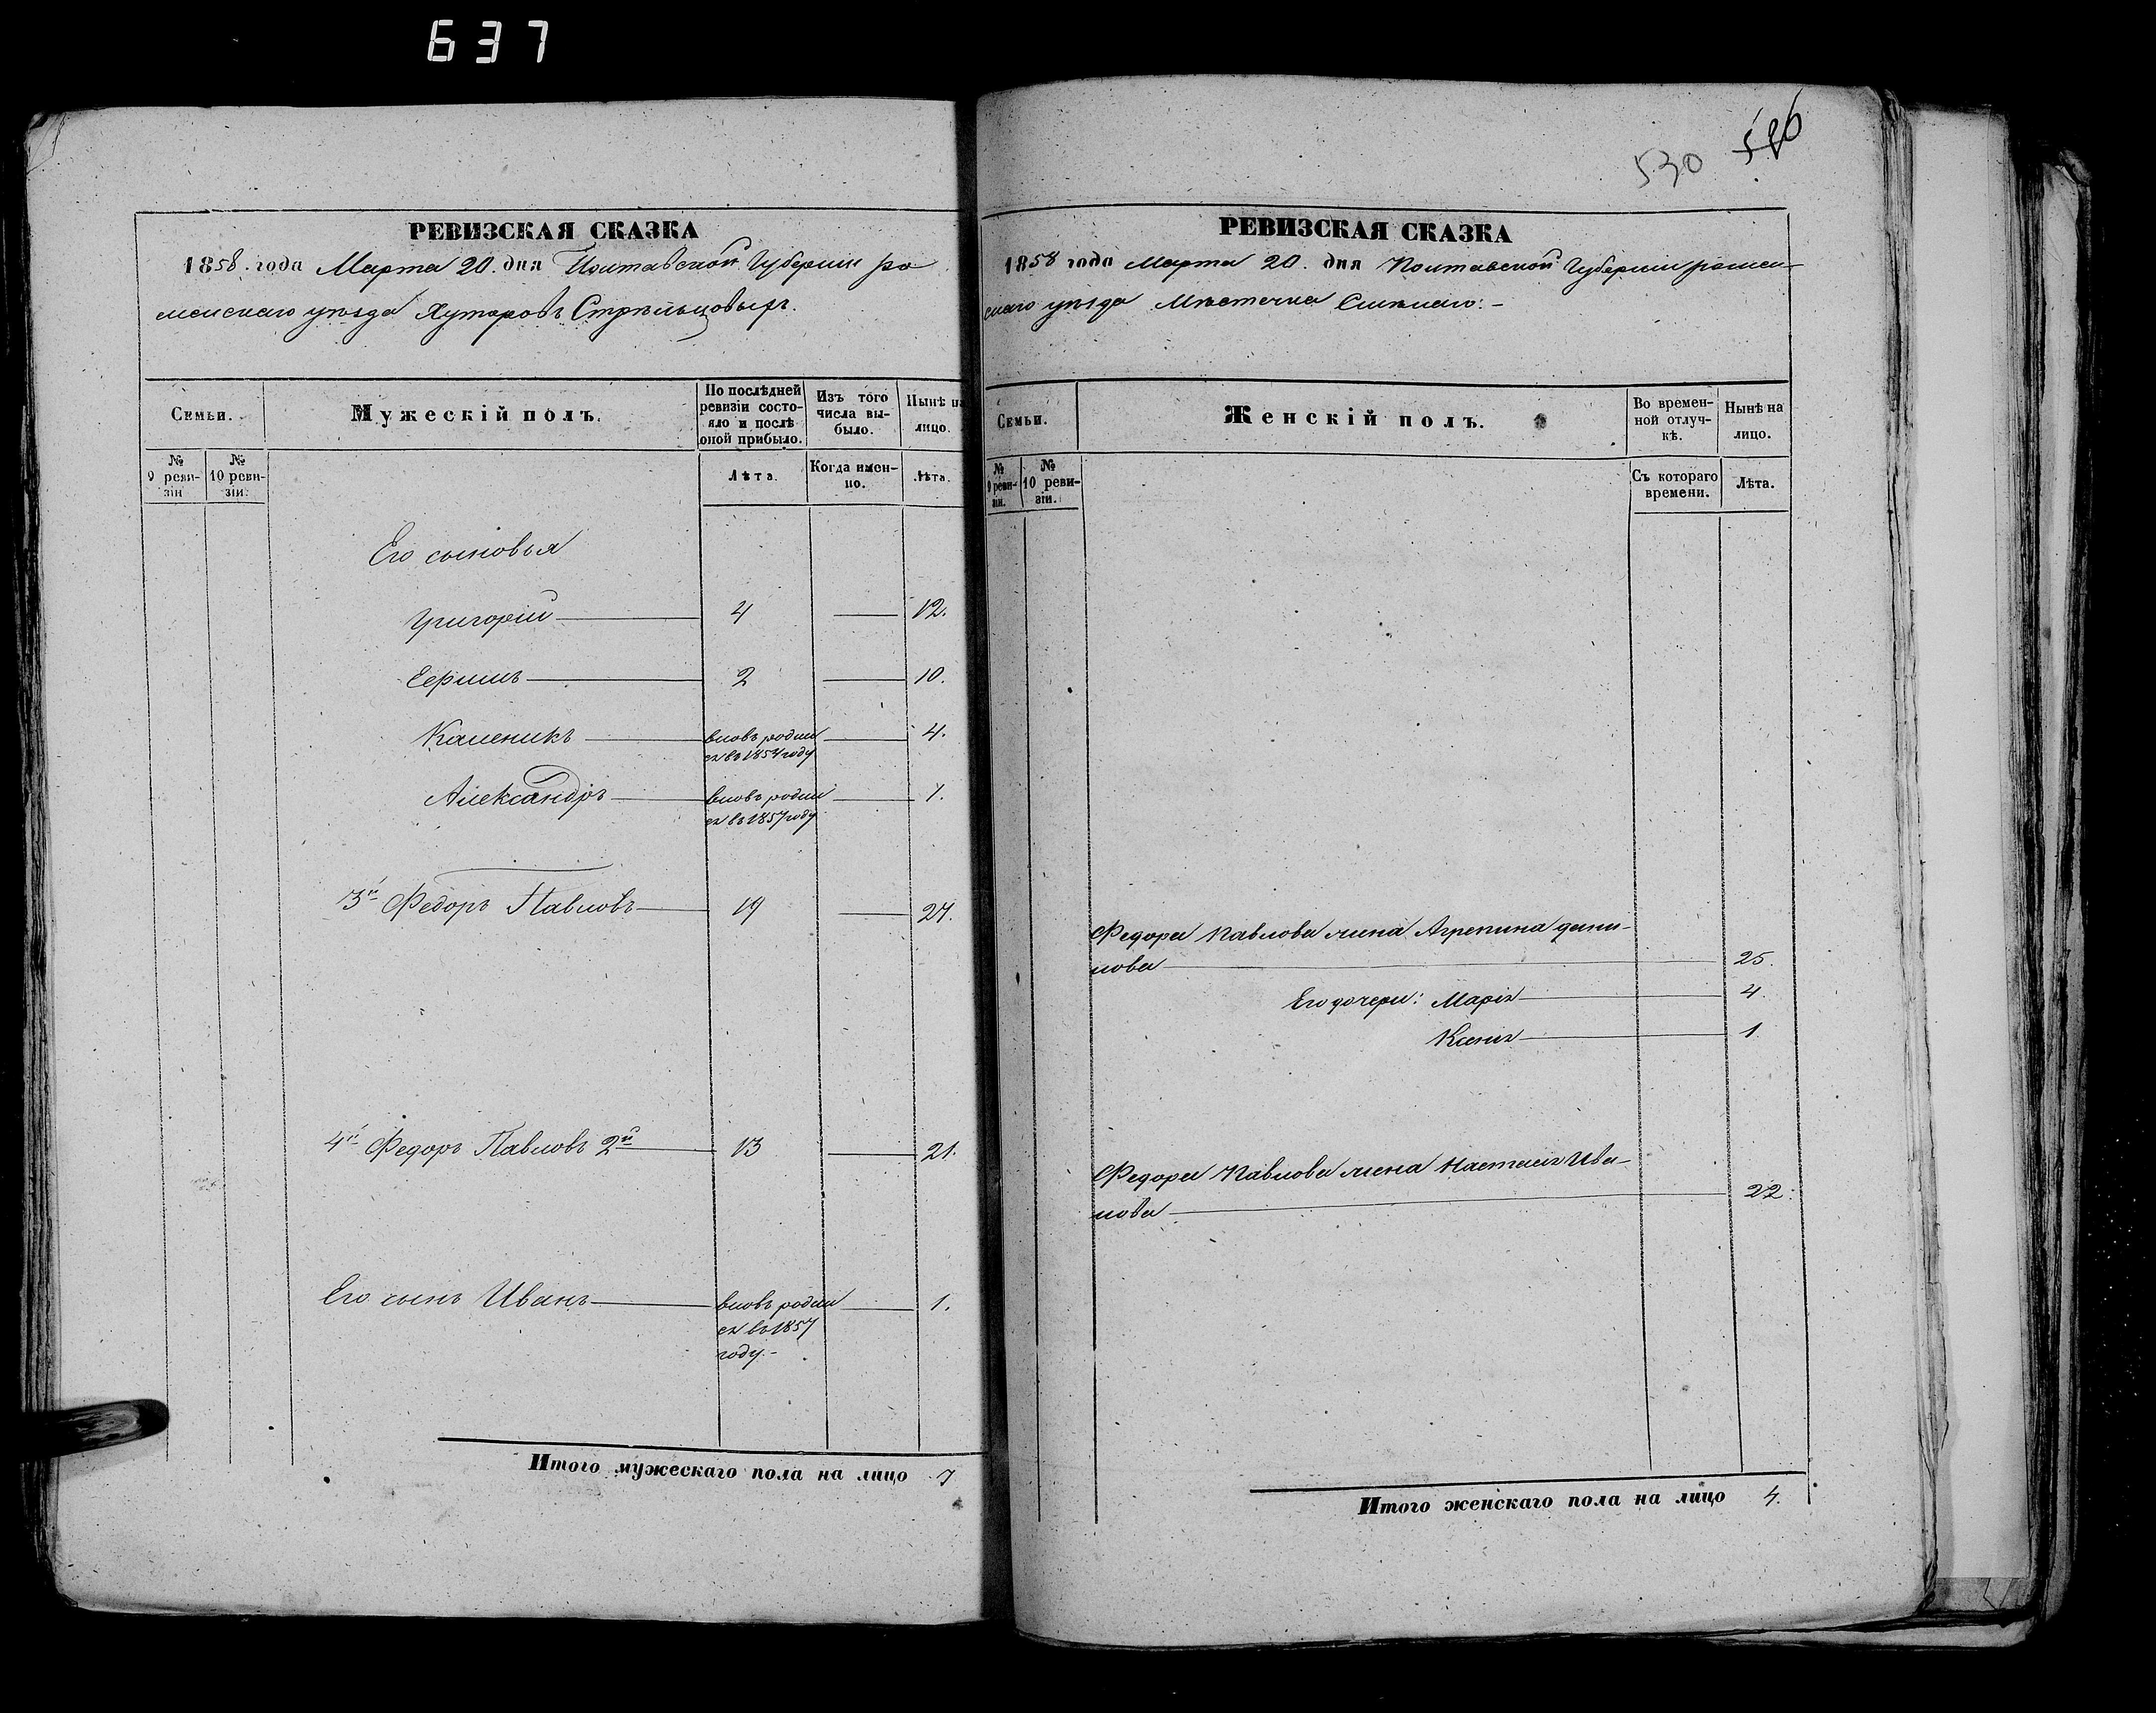 637
РЕВИЗСКАЯ СКАЗКА
1858. года Марта 20. дня Полтавской Губерніи ро
менскаго уѣзда Хуторовъ Стрѣльцовыхъ.
Семьи.
Мужескій полъ.
По послѣдней ревизіи состояло и послѣ оной прибыло.
Изъ того числа выбыло.
Нынѣ на лицо.
№ 9 ревизіи
№ 10 ревизіи.
Лѣта.
Когда именно.
Лѣта.
Его сыновья
Григорій 4 12.
Ефимъ 2 10.
Каленикъ вновь родил 4.
ся въ 1854 году
Александръ вновь родил 1.
ся въ 1857 году
3й Федоръ Павловъ 19 27.
4й Федоръ Павловъ 2й 13 21.
Его сынъ Иванъ вновь родил 1.
ся въ 1857
году.-
Итого мужескаго пола на лицо 7
530 526
РЕВИЗСКАЯ СКАЗКА
1858 года Марта 20. дня Полтавской Губерніи ромен-
скаго уѣзда Мѣстечка
Семьи.
Женскій полъ.
Во временной отлучкѣ.
Нынѣ на лицо.
№ 9 ревизіи.
№ 10 ревизіи.
Съ котораго времени.
Лѣта.
Федора Павлова жена Агрепина дани-
лова 25.
Его дочери: Марія 4.
Ксенія 1
Федора Павлова жена Настасія Ива-
нова 22.
Итого женскаго пола на лицо 4.